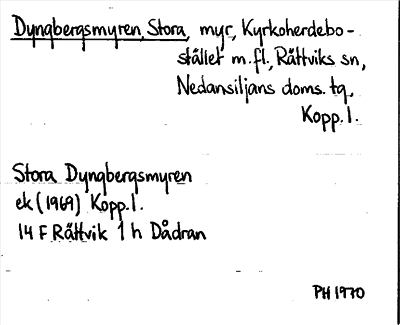 Dyngbergsmyren, Stora, myr, Kyrkoherdebo-
stället m.fl., Rättviks sn,
Nedansiljans doms. tg,
Kopp. l.
Stora Dyngbergsmyren
ek (1969) Kopp. l.
14 F Rättvik 1 h Dådran
PH 1970